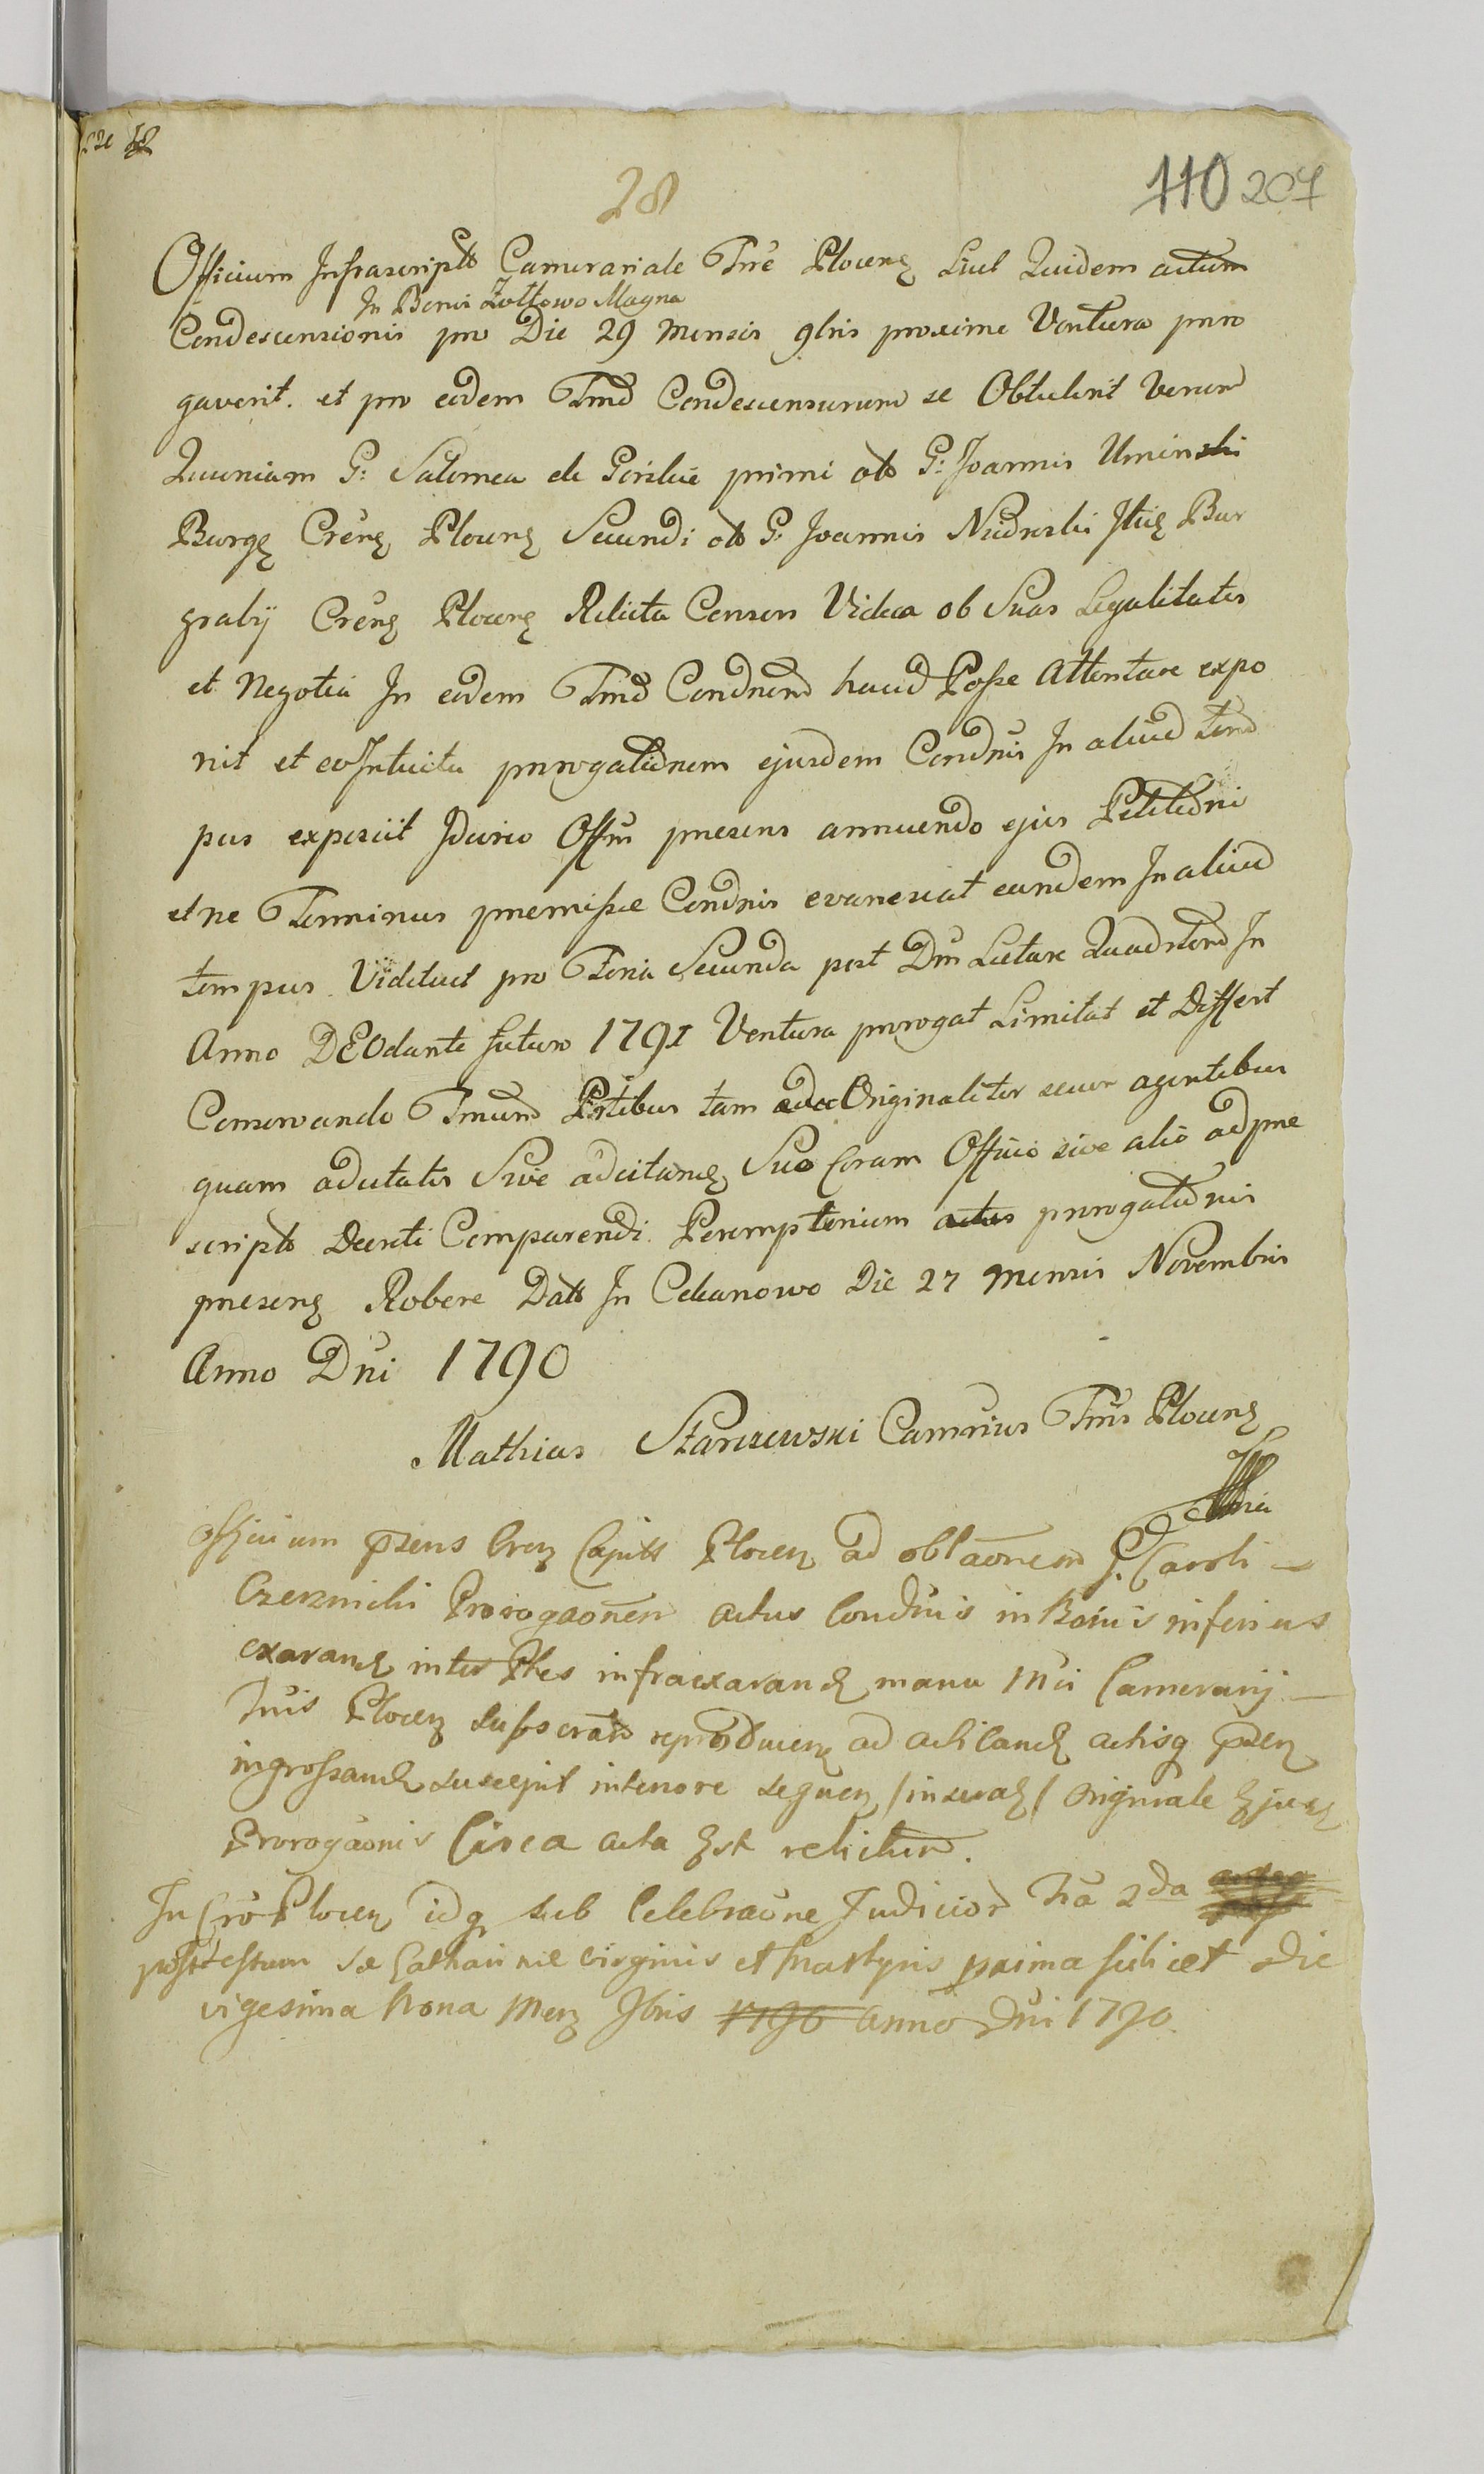 28
110 207
Officium Infrascriptũ Camerariale Trrē Plocenȝ Licet Quidem actum
In Bonis Zołtowo Magna
Condescensionis pro Die 29 Mensis 9bris proxime Ventura proro
gaverit. et pro eodem Tmō Condescensurum se Obtulerit Verum
Quoniam G: Salomea de Gorskie primi olb G: Joannis Uminski
Burgȝ Crēnȝ Plocenȝ Secundi olb G: Joannis Nidrski Itiȝ Bur
grabij Crēnȝ Plocenȝ Relicta Consors Vidua ob Suas Legalitates
et Negotia In eodem Tmō Condnem haud Posse Attentare expo
nit et eo Intuitu prorogationem ejusdem Condnis In aliud tem
pus exposcit Idcirco Offm praesens annuendo ejus Petitioni
et ne Terminus praemissae Condnis evanescat eundem In aliud
tempus Videlicet pro Feria Secunda post Dm Laetare Quadrlem In
Anno DEO dante futuro 1791 Ventura prorogat Limitat et Differt
Conservando Tmum Ptibus tam Originaliter secum agentibus
quam adcitatis Sive adcitandȝ Suo Coram Officio sive alio ad prae
scriptũ Decreti Comparendi Peremptorium actus prorogationis
praesenȝ Robore Datt In Cekanowo Die 27 Mensis Novembris
Anno Dni 1790
Mathias Starzewski Camrius Trrīs Plocenȝ
officium prens Crenȝ Capitt Plocenȝ ad oblaonem G. Caroli
Czerznicki Prorogaonem actus Condnis in Bonis inferius
exarandȝ inter Ptes infraexarandȝ manu Mci Camerarij
Trrīs Plocenȝ subscrapt reproducenȝ ad acticandȝ actisq prenȝ
ingrossandȝ suscepit in tenore sequenȝ /inseratȝ/ Originale Ejusdȝ
Prorogaonis Circa acta Est relictum.
In Cro Plocenȝ idq sub Celebraone Judicior fria 2da
post festum Sae Catharinae virginis et Martyris prima scilicet die
vigesima Nona Menȝ 9bris 1790 anno Dni 1790.